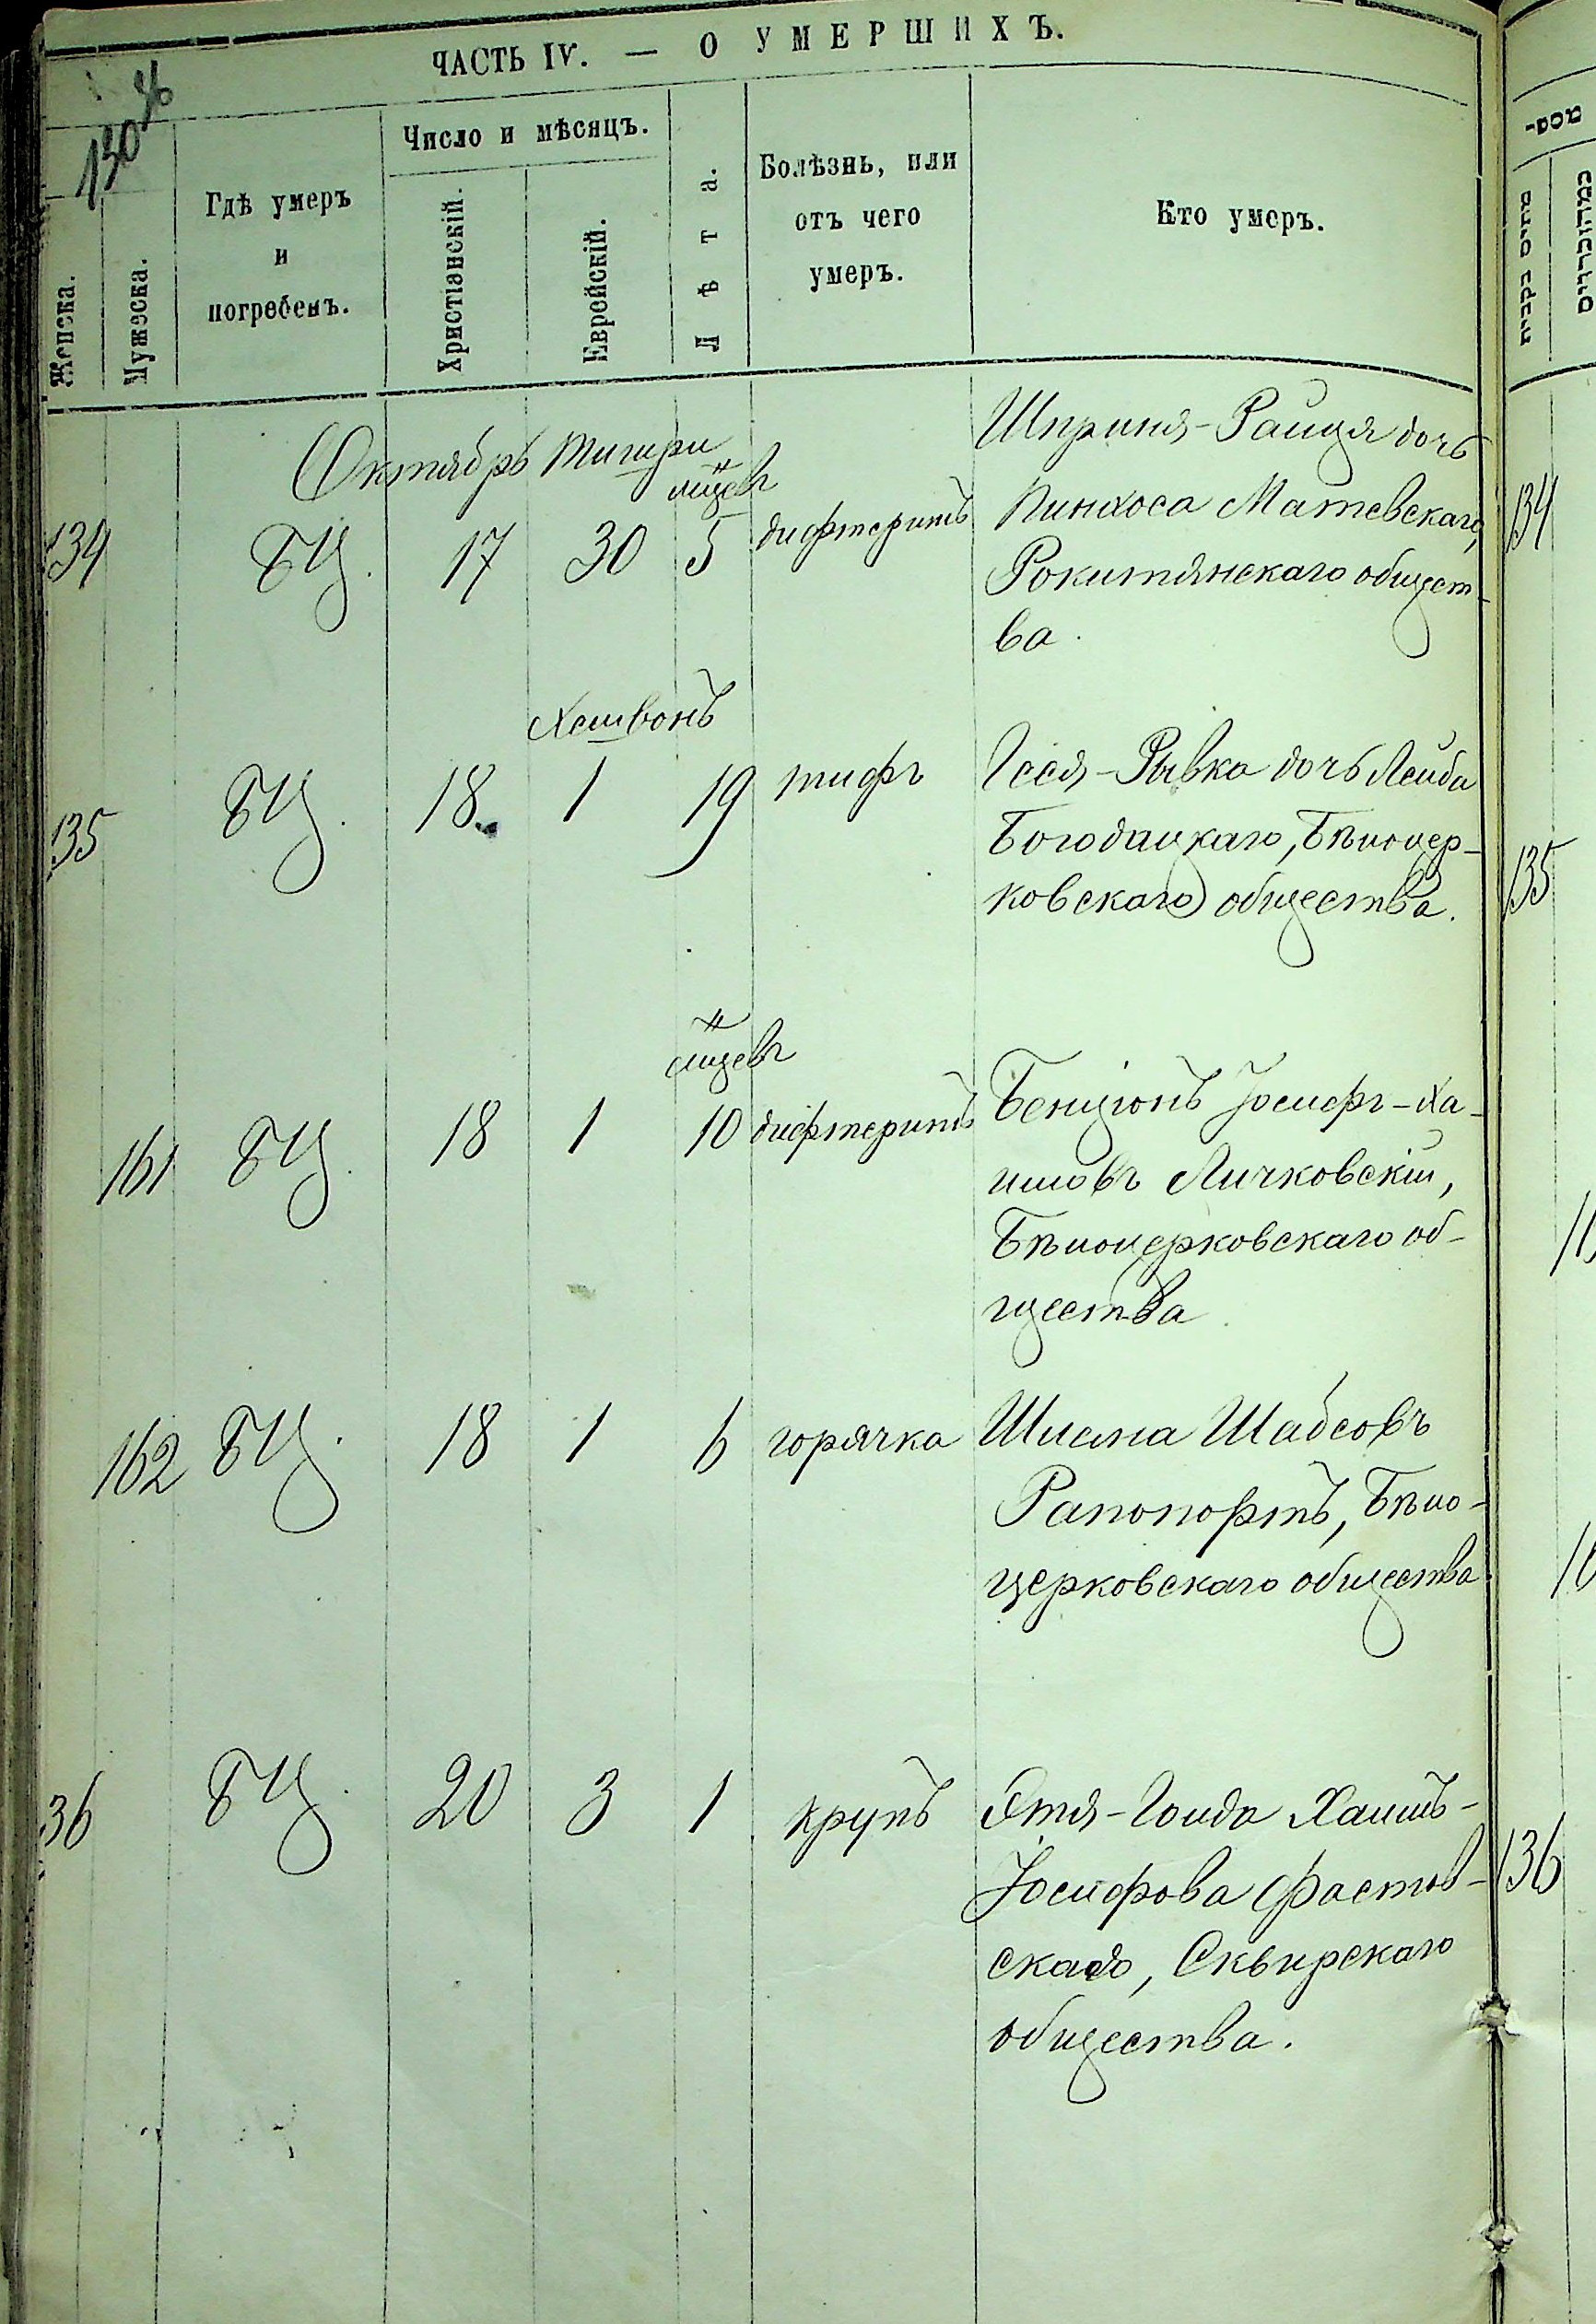 ЧАСТЬ IV. — О УМЕРШИХЪ.
130
Женска.
Мужеска.
Гдѣ умеръ
и
погребенъ.
Число и мѣсяцъ.
Христіанскій.
Еврейскій.
Лѣта.
Болѣзнь, или
отъ чего
умеръ.
Кто умеръ.
Октябрь Тишри
Шприня-Раиця дочь
мцевъ
134 БЦ. 17 30 5 дифтеритъ Пинхоса Матевскаго,
134
Рокитянскаго общест-
ва.
Хешвонъ
135 БЦ. 18 1 19 тифъ Гися-Рывка дочь Лейба
135
Богодацкаго, Бѣлоцер-
ковскаго общества.
мцевъ
161 БЦ. 18 1 10 дифтеритъ Бенціонъ Іосифъ-Ха-
имовъ Личковскій,
Бѣлоцерковскаго об-
щества
162 БЦ. 18 1 6 горячка Шлема Шабсовъ
Рапопортъ, Бѣло-
церковскаго общества
136 БЦ. 20 3 1 крупъ Этя-Голда Хаимъ-
136
Іосифова Фастов-
ская, Сквирскаго
общества.